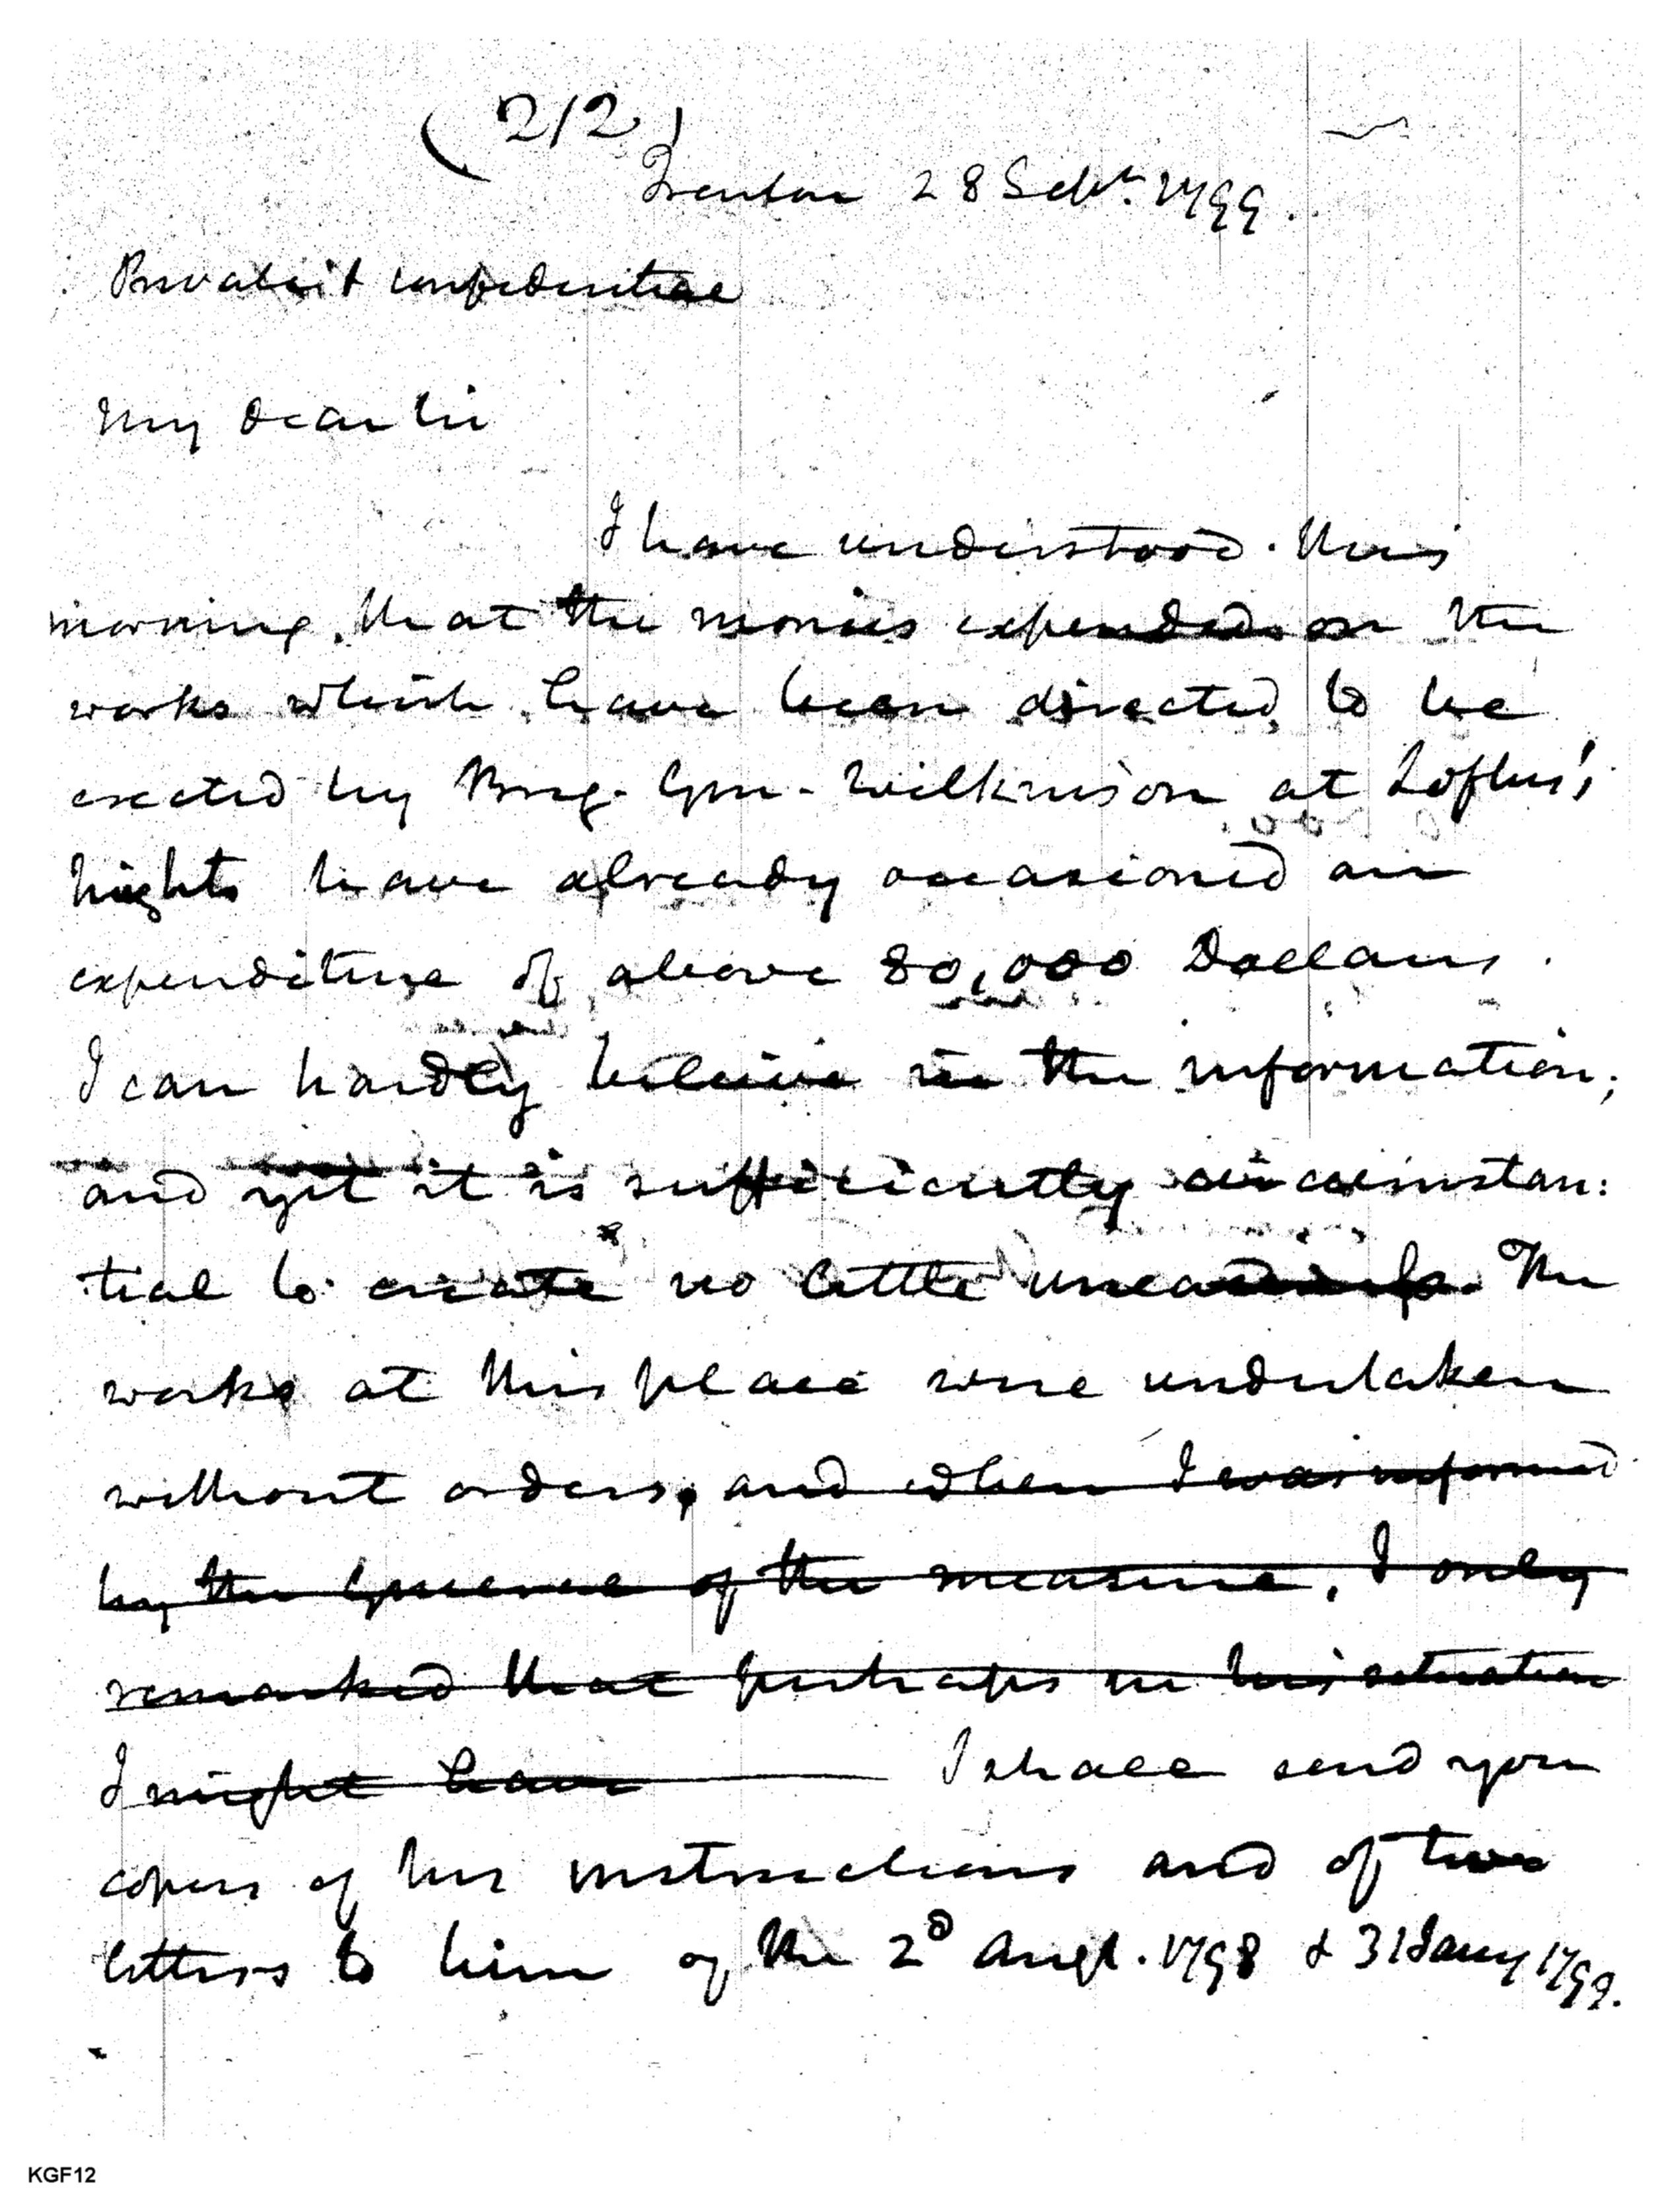 (212)
Trenton 28 Sept. 1799.
Private & confidential
My dear Sir
I have understood this
morning, that the monies expended on the
works which have been directed to be
erected by Brig. Gen. Wilkinson at Loftus's
hights have already occasioned an
expenditure of above 80,000 Dollars.
I can hardly believe in the information;
and yet it is sufficiently circumstan:
tial to create no little uneasiness. The
works at this place were undertaken
without orders, and when I was informed
by the General of the measure, I only
remarked that perhaps in his situation
I might have I shall send you
copies of his instructions and of two
letters to him of the 2d Augt. 1798 & 31 Jany 1799.
KGF12